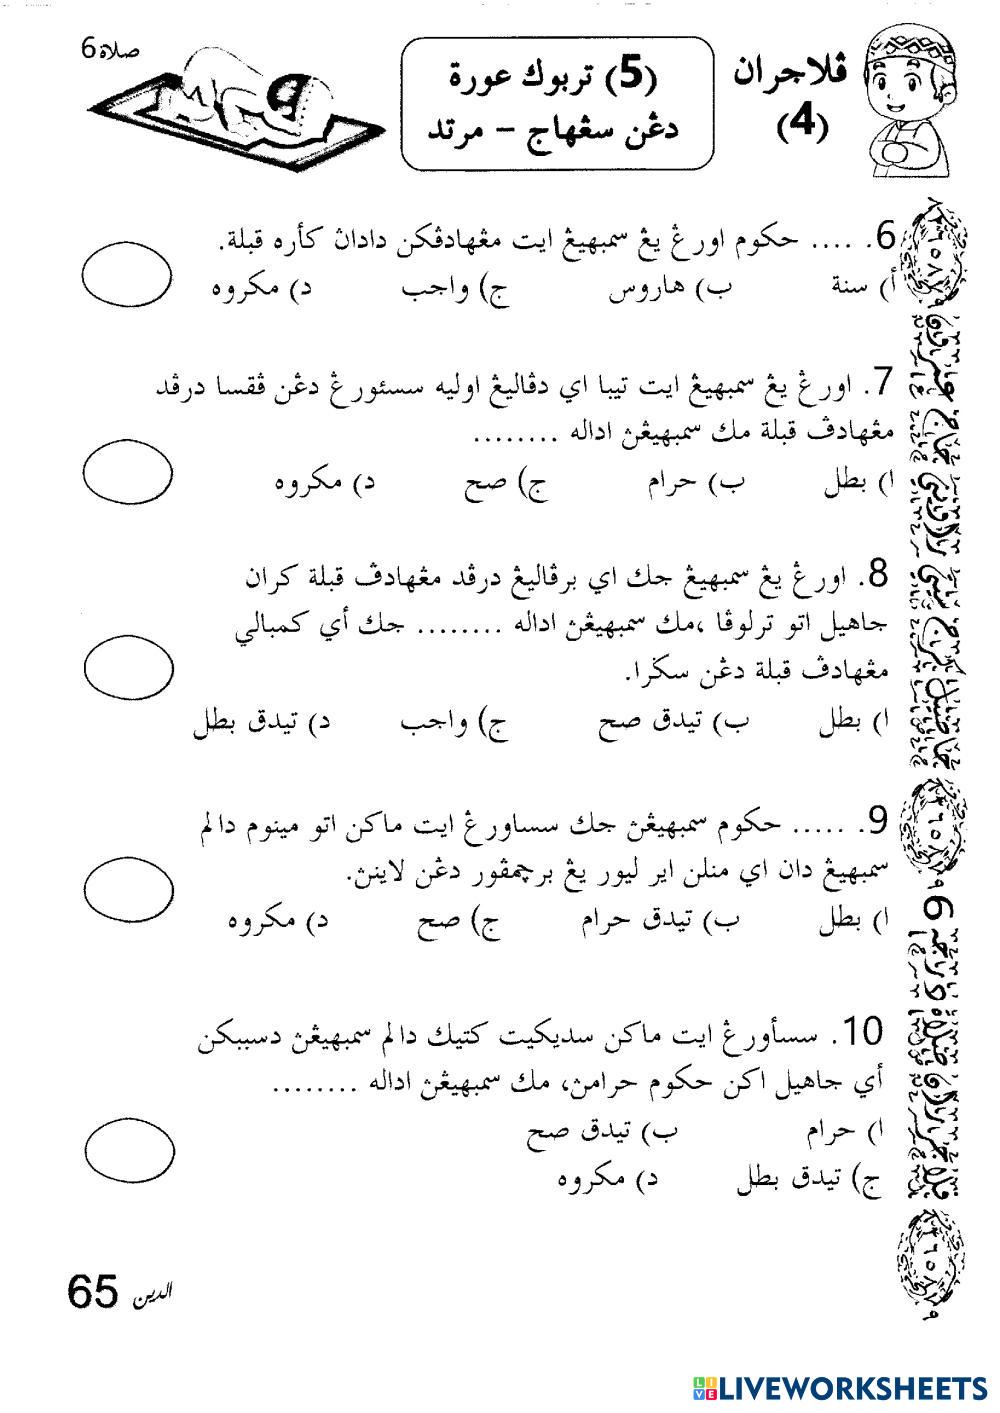 صلاة 6
(5) تربوك عورة
دڠن سڠهاج – مرتد
ڤلاجران
(4)
6. .... حكوم اورڠ يڠ سمبهيڠ ايت مڠهادڤكن دادان كأره قبلة.
أ) سنة ب) هاروس ج) واجب د) مكروه
7. اورڠ يڠ سمبهيڠ ايت تيبا اي دڤاليڠ اوليه سسئورڠ دڠن ڤقسا درڤد
مڠهادڤ قبلة مك سمبهيڠڽ اداله ........
ا) بطل ب) حرام ج) صح د) مكروه
8. اورڠ يڠ سمبهيڠ جك اي برڤاليڠ درڤد مڠهادڤ قبلة كران
جاهيل اتو ترلوڤا ،مك سمبهيڠڽ اداله ........ جك أي كمبالي
مڠهادڤ قبلة دڠن سݢرا.
ا) بطل ب) تيدق صح ج) واجب د) تيدق بطل
9. ..... حكوم سمبهيڠڽ جك سساورڠ ايت ماكن اتو مينوم دالم
سمبهيڠ دان اي منلن اير ليور يڠ برچمڤور دڠن لاينڽ.
ا) بطل ب) تيدق حرام ج) صح د) مكروه
10. سسأورڠ ايت ماكن سديكيت كتيك دالم سمبهيڠڽ دسببكن
أي جاهيل اكن حكوم حرامڽ، مك سمبهيڠڽ اداله ........
ا) حرام ب) تيدق صح
ج) تيدق بطل د) مكروه
65 الدين
LIVEWORKSHEETS